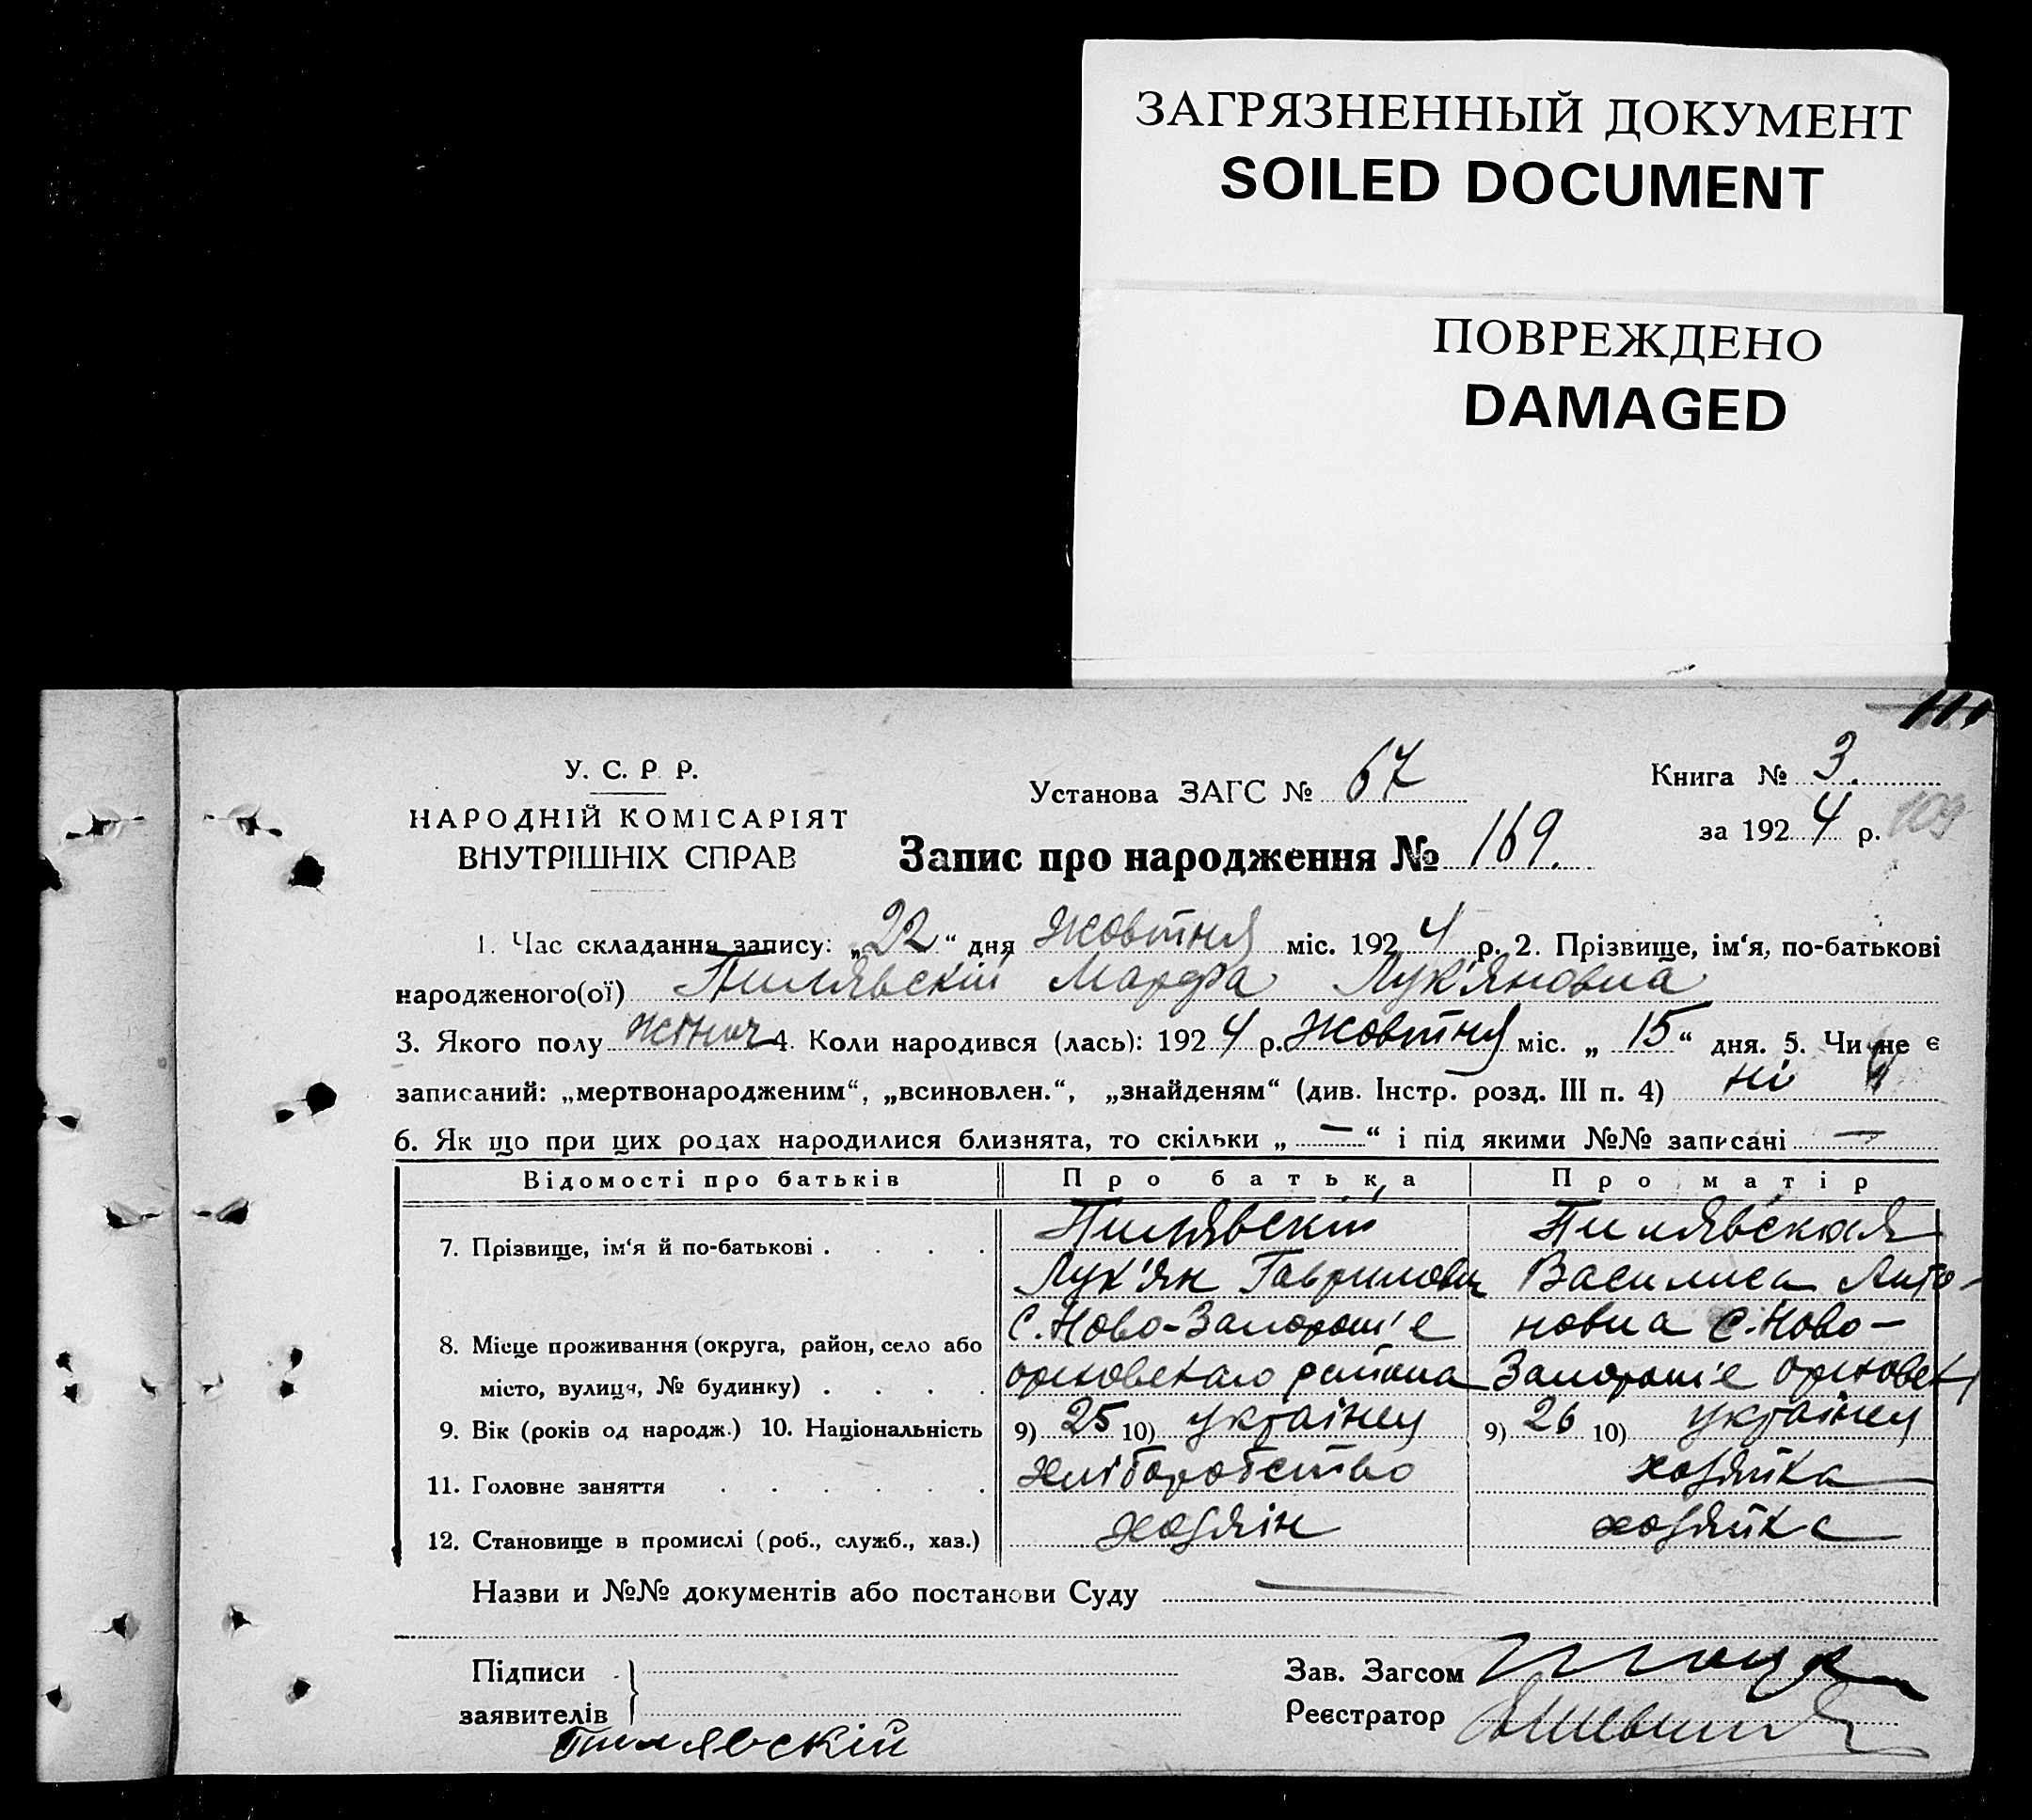 ЗАГРЯЗНЕННЫЙ ДОКУМЕНТ
SOILED DOCUMENT
ПОВРЕЖДЕНО
DAMAGED
111
У. С. Р Р.
Установа ЗАГС № 67
Книга № 3.
НАРОДНІЙ КОМІСАРІЯТ
за 1924 р. 109
ВНУТРІШНІХ СПРАВ
Запис про народження № 169.
1. Час складання запису: „22“ дня Жовтня міс. 1924 р. 2. Прізвище, ім‘я, по-батькові
народженого(ої) Пилявскій Марфа Лук'яновна
3. Якого полу жіноч 4. Коли народився (лась): 1924 р. Жовтня міс. „15“ дня. 5. Чи не є
записаний: „мертвонародженим“, „всиновлен.“, „знайденям“ (див. Інстр. розд. III п. 4) ні
6. Як що при цих родах народилися близнята, то скільки „—“ і під якими №№ записані —
Відомості про батьків Про батька Про матір
7. Прізвище, ім‘я й по-батькові . . . . Пилявскій Пилявская
Лук'ян Гаврилович Василиса Анто-
С. Ново-Запорож'е новна С. Ново-
8. Місце проживання (округа, район, село або
місто, вулиця, № будинку) . . . . ореховскаго района Запорож'е ореховск
9. Вік (років од народж.) 10. Національність 9) 25 10) українец 9) 26 10) українец
11. Головне заняття . . . . . . хліборобство хозяйка
12. Становище в промислі (роб., служб., хаз.) хозяін хозяйка
Назви и №№ документів або постанови Суду —
Підписи
Зав. Загсом
заявителів
Реєстратор
Пилявскій